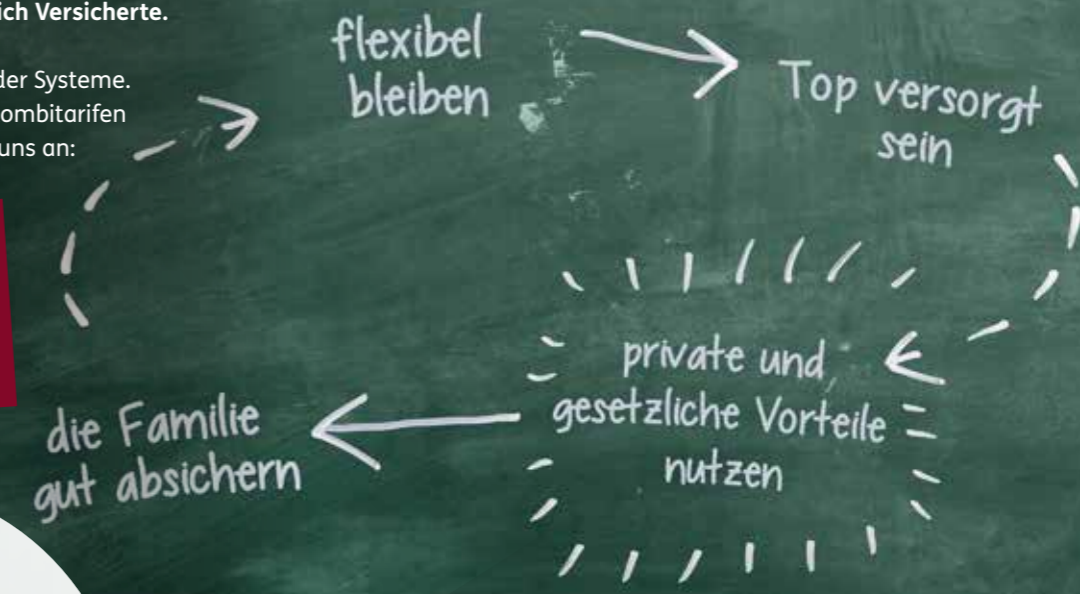 ich Versicherte.
der Systeme.
ombitarifen
uns an:
flexibel
bleiben
Top versorgt
sein
private und
gesetzliche Vorteile
nutzen
die Familie
gut absichern